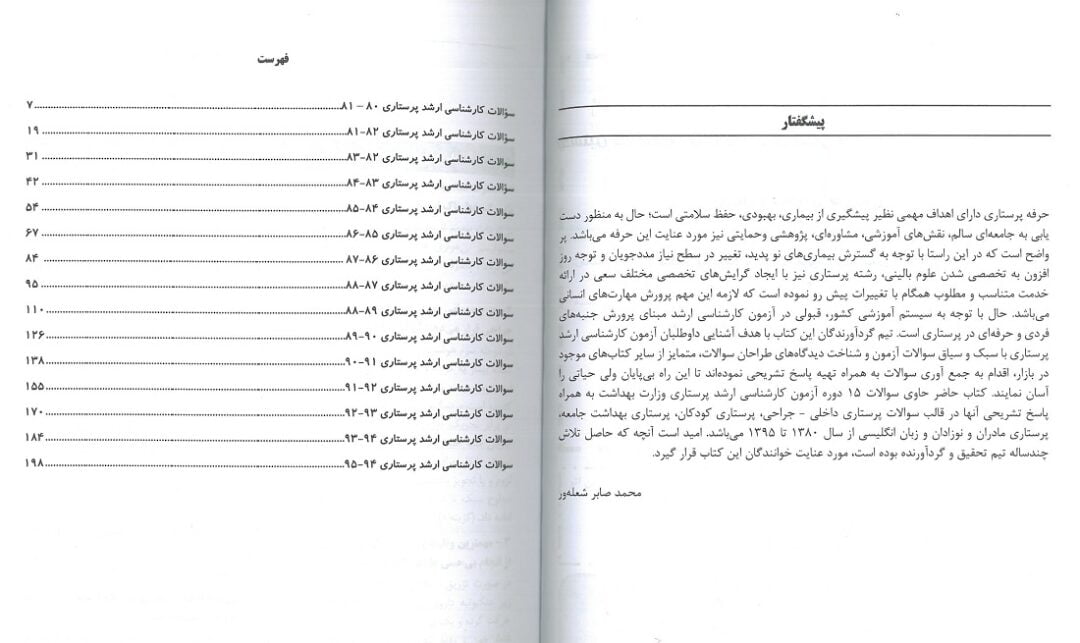 پیشگفتار
حرفه پرستاری دارای اهداف مهمی نظیر پیشگیری از بیماری، بهبودی، حفظ سلامتی است؛ حال به منظور دست
یابی به جامعه‌ای سالم، نقش‌های آموزشی، مشاوره‌ای، پژوهشی وحمایتی نیز مورد عنایت این حرفه می‌باشد. پر
واضح است که در این راستا با توجه به گسترش بیماری‌های نو پدید، تغییر در سطح نیاز مددجویان و توجه روز
افزون به تخصصی شدن علوم بالینی، رشته پرستاری نیز با ایجاد گرایش‌های تخصصی مختلف سعی در ارائه
خدمت متناسب و مطلوب همگام با تغییرات پیش رو نموده است که لازمه این مهم پرورش مهارت‌های انسانی
می‌باشد. حال با توجه به سیستم آموزشی کشور، قبولی در آزمون کارشناسی ارشد مبنای پرورش جنبه‌های
فردی و حرفه‌ای در پرستاری است. تیم گردآورندگان این کتاب با هدف آشنایی داوطلبان آزمون کارشناسی ارشد
پرستاری با سبک و سیاق سوالات آزمون و شناخت دیدگاه‌های طراحان سوالات، متمایز از سایر کتاب‌های موجود
در بازار، اقدام به جمع آوری سوالات به همراه تهیه پاسخ تشریحی نموده‌اند تا این راه بی‌پایان ولی حیاتی را
آسان نمایند. کتاب حاضر حاوی سوالات ۱۵ دوره آزمون کارشناسی ارشد پرستاری وزارت بهداشت به همراه
پاسخ تشریحی آنها در قالب سوالات پرستاری داخلی - جراحی، پرستاری کودکان، پرستاری بهداشت جامعه،
پرستاری مادران و نوزادان و زبان انگلیسی از سال ۱۳۸۰ تا ۱۳۹۵ می‌باشد. امید است آنچه که حاصل تلاش
چندساله تیم تحقیق و گردآورنده بوده است، مورد عنایت خوانندگان این کتاب قرار گیرد.
محمد صابر شعله‌ور
فهرست
سؤالات کارشناسی ارشد پرستاری ۸۰ – ۸۱..........۷
سؤالات کارشناسی ارشد پرستاری ۸۲-۸۱..........۱۹
سوالات کارشناسی ارشد پرستاری ۸۲-۸۳..........۳۱
سؤالات کارشناسی ارشد پرستاری ۸۳-۸۴..........۴۲
سوالات کارشناسی ارشد پرستاری ۸۴-۸۵..........۵۴
سوالات کارشناسی ارشد پرستاری ۸۵-۸۶..........۶۷
سوالات کارشناسی ارشد پرستاری ۸۶-۸۷..........۸۴
سوالات کارشناسی ارشد پرستاری ۸۷-۸۸..........۹۵
سوالات کارشناسی ارشد پرستاری ۸۸-۸۹..........۱۱۰
سوالات کارشناسی ارشد پرستاری ۹۰-۸۹..........۱۲۶
سوالات کارشناسی ارشد پرستاری ۹۱-۹۰..........۱۳۸
سوالات کارشناسی ارشد پرستاری ۹۲-۹۱..........۱۵۵
سوالات کارشناسی ارشد پرستاری ۹۳-۹۲..........۱۷۰
سوالات کارشناسی ارشد پرستاری ۹۴-۹۳..........۱۸۴
سوالات کارشناسی ارشد پرستاری ۹۴-۹۵..........۱۹۸